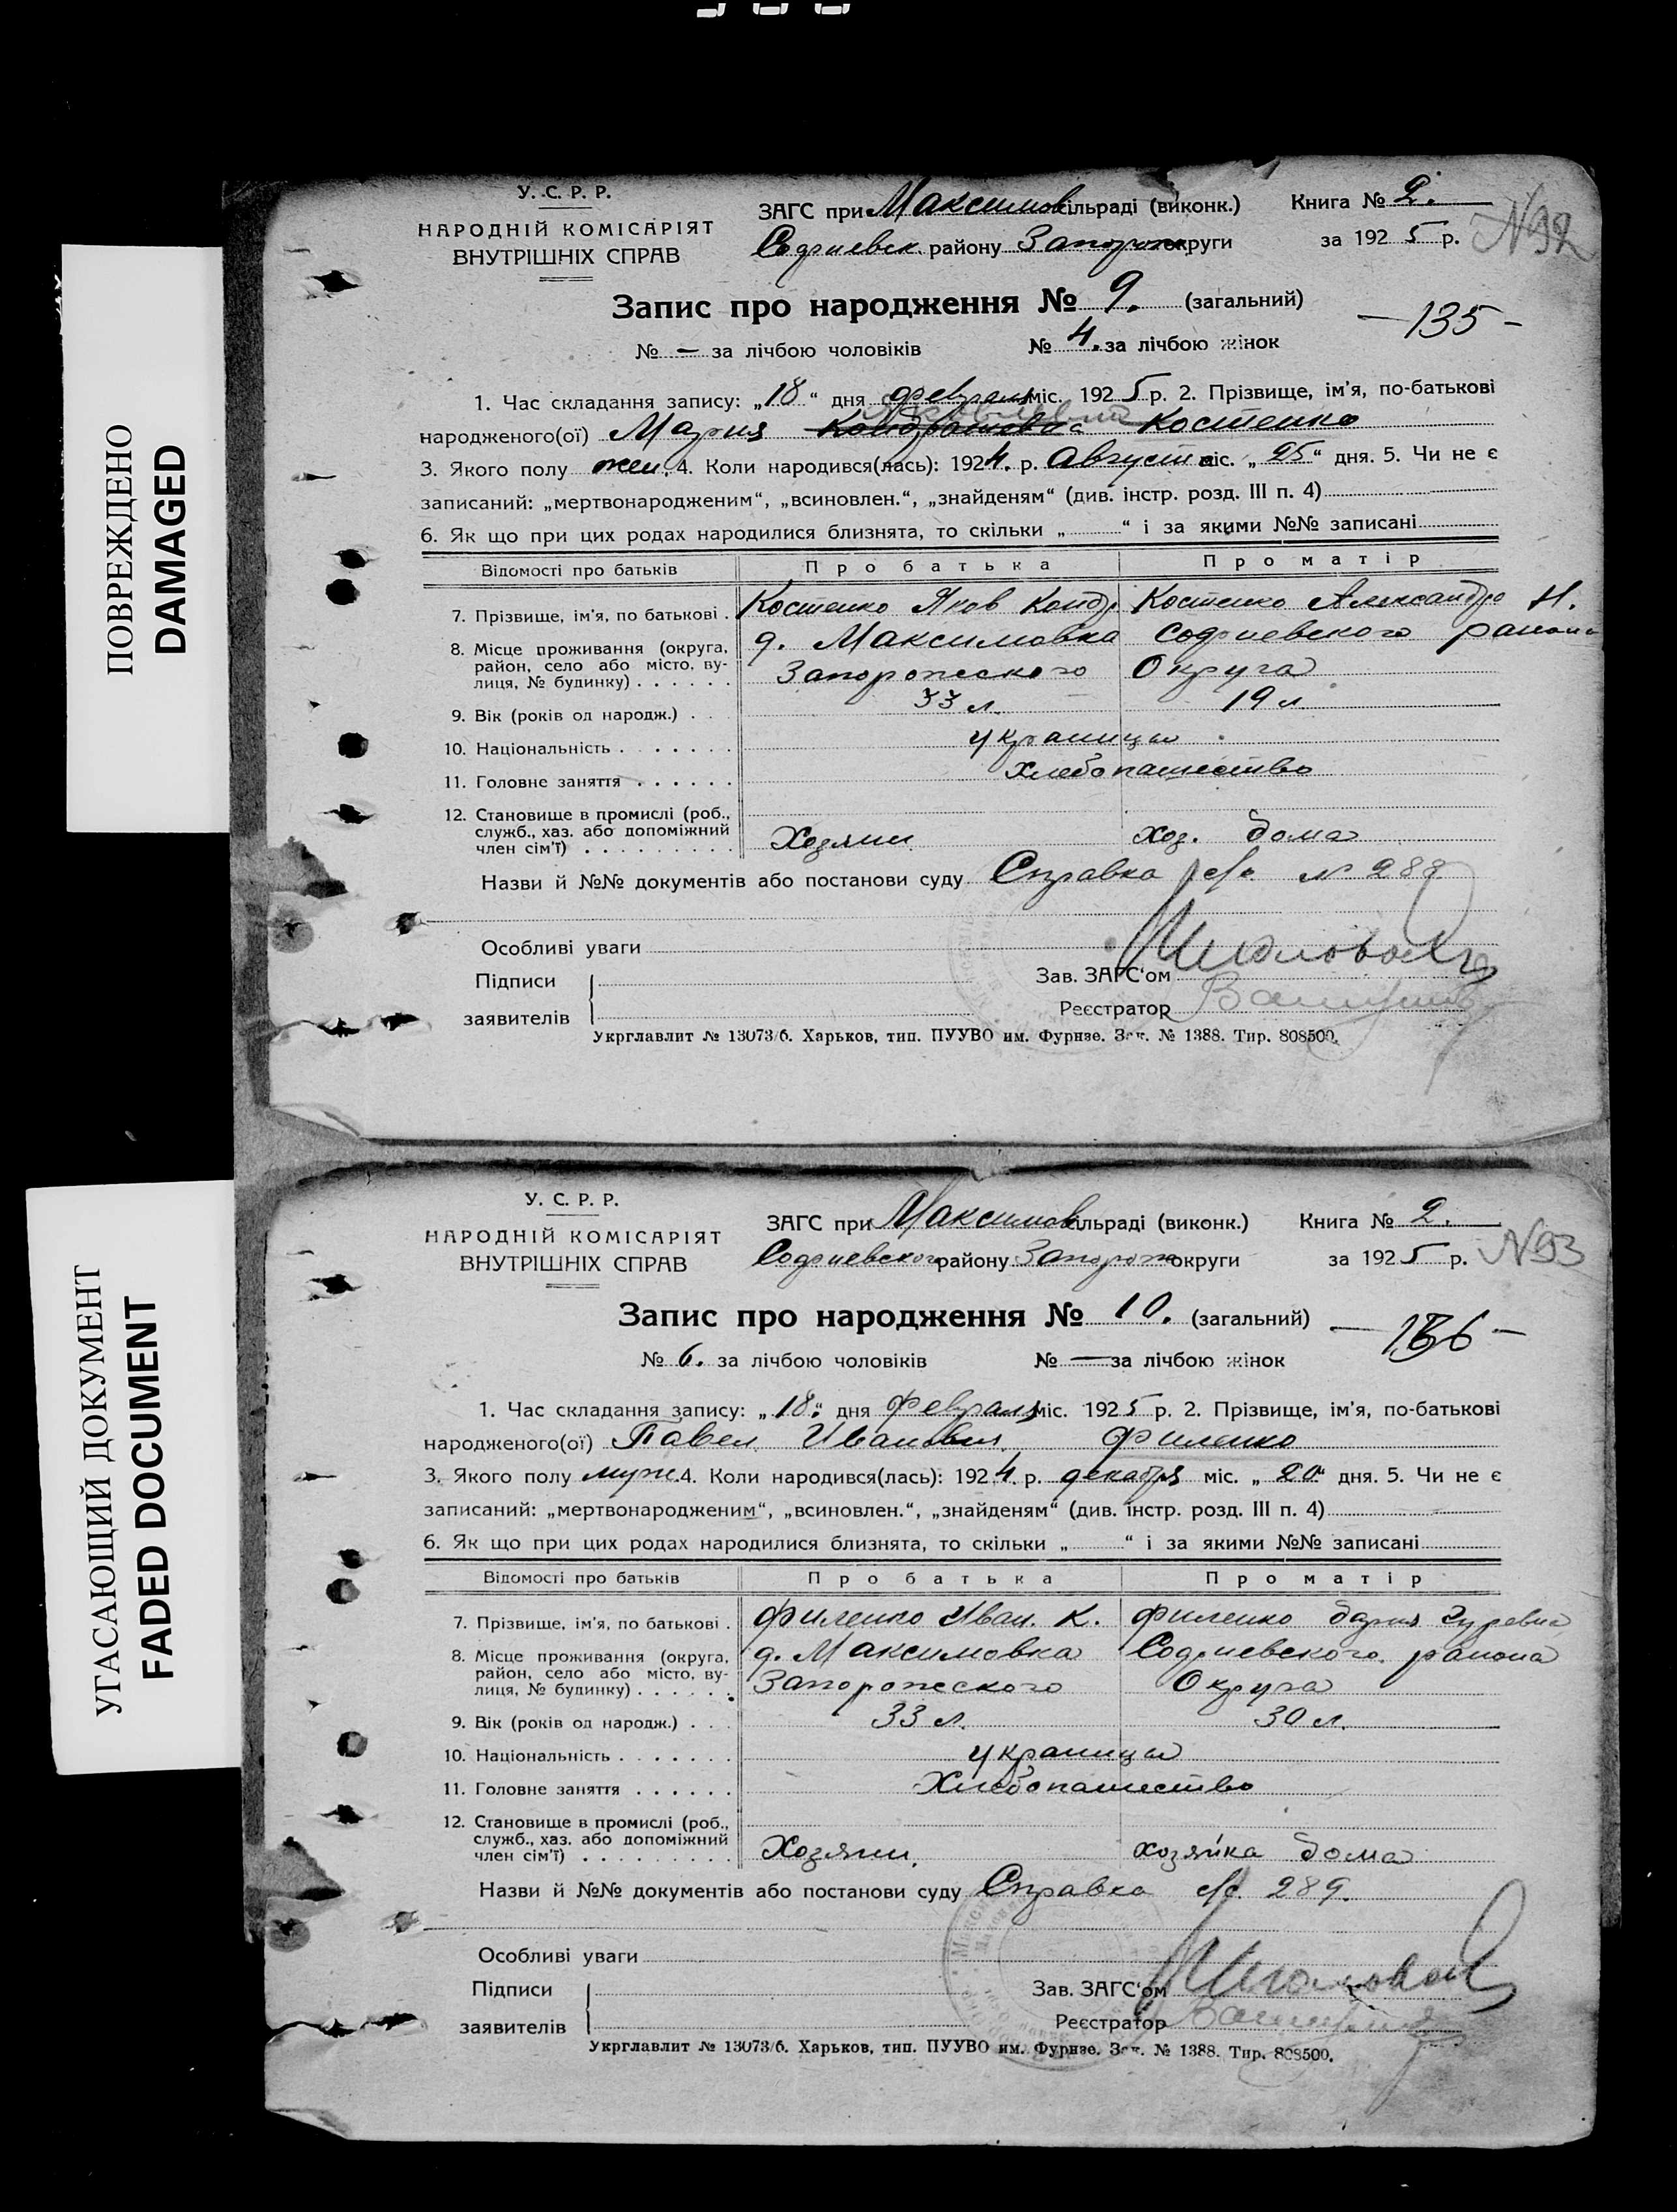 ПОВРЕЖДЕНО
DAMAGED
У. С. Р. Р.
НАРОДНІЙ КОМІСАРІЯТ
ВНУТРІШНІХ СПРАВ
ЗАГС при Максимов сільраді (виконк.)
Софиевск. району Запорож округи
Книга № 2.
за 1925 р.
N92
Запис про народження № 9. (загальний)
— 135 -
№ — за лічбою чоловіків № 4. за лічбою жінок
1. Час складання запису: „18“ дня февраля міс. 1925 р. 2. Прізвище, ім'я, по-батькові
народженого(ої) Мария Кондратовна Яковлевна Костенко
3. Якого полу жен. 4. Коли народився(лась): 1924. р. Августа міс. „25“ дня. 5. Чи не є
записаний: „мертвонародженим“, „всиновлен.“, „знайденям“ (див. інстр. розд. III п. 4)
6. Як що при цих родах народилися близнята, то скільки „ “ і за якими №№ записані
Відомості про батьків Про батька Про матір
7. Прізвище, ім'я, по батькові . Костенко Яков Кондр Костенко Александра Н.
8. Місце проживання (округа, район, село або місто, вулиця, № будинку) . . . . . . д. Максимовка Софиевского района
Запорожского Округа
9. Вік (років од народж.) . . 33 л. 19 л.
10. Національність . . . . . . . украинцы
11. Головне заняття . . . . . . Хлебопашество
12. Становище в промислі (роб., служб., хаз. або допоміжний член сім'ї) . . . . . . . . . Хозяин. хоз. дома
Назви й №№ документів або постанови суду Справка с/с. № 288
Особливі уваги
Підписи
заявителів
Зав. ЗАГС'ом
Реєстратор
Укрглавлит № 13073/6. Харьков, тип. ПУУВО им. Фурнзе. Зак. № 1388. Тир. 808500.
УГАСАЮЩИЙ ДОКУМЕНТ
FADED DOCUMENT
У. С. Р. Р.
НАРОДНІЙ КОМІСАРІЯТ
ВНУТРІШНІХ СПРАВ
ЗАГС при Максимов сільраді (виконк.)
Софиевского району Запорож округи
Книга № 2.
за 1925 р.
N93
Запис про народження № 10. (загальний)
— 136 —
№ 6. за лічбою чоловіків № — за лічбою жінок
1. Час складання запису: „18.“ дня Февраля міс. 1925 р. 2. Прізвище, ім'я, по-батькові
народженого(ої) Павел Иванович Филенко
3. Якого полу муж. 4. Коли народився(лась): 1924 р. декабря міс. „20“ дня. 5. Чи не є
записаний: „мертвонародженим“, „всиновлен.“, „знайденям“ (див. інстр. розд. III п. 4)
6. Як що при цих родах народилися близнята, то скільки „ “ і за якими №№ записані
Відомості про батьків Про батька Про матір
7. Прізвище, ім'я, по батькові . Филенко Иван. К. Филенко Дария Гуревна
8. Місце проживання (округа, район, село або місто, вулиця, № будинку) . . . . . . д. Максимовка Софиевского района
Запорожского Округа
9. Вік (років од народж.) . . . 33 л. 30 л.
10. Національність . . . . . . . украинцы
11. Головне заняття . . . . . . Хлебопашество
12. Становище в промислі (роб., служб., хаз. або допоміжний член сім'ї) . . . . . . . . . Хозяин. хозяйка дома
Назви й №№ документів або постанови суду Справка с/с. 289.
Особливі уваги
Підписи
заявителів
Зав. ЗАГС'ом
Реєстратор
Укрглавлит № 13073/6. Харьков, тип. ПУУВО им. Фурнзе. Зак. № 1388. Тир. 808500.